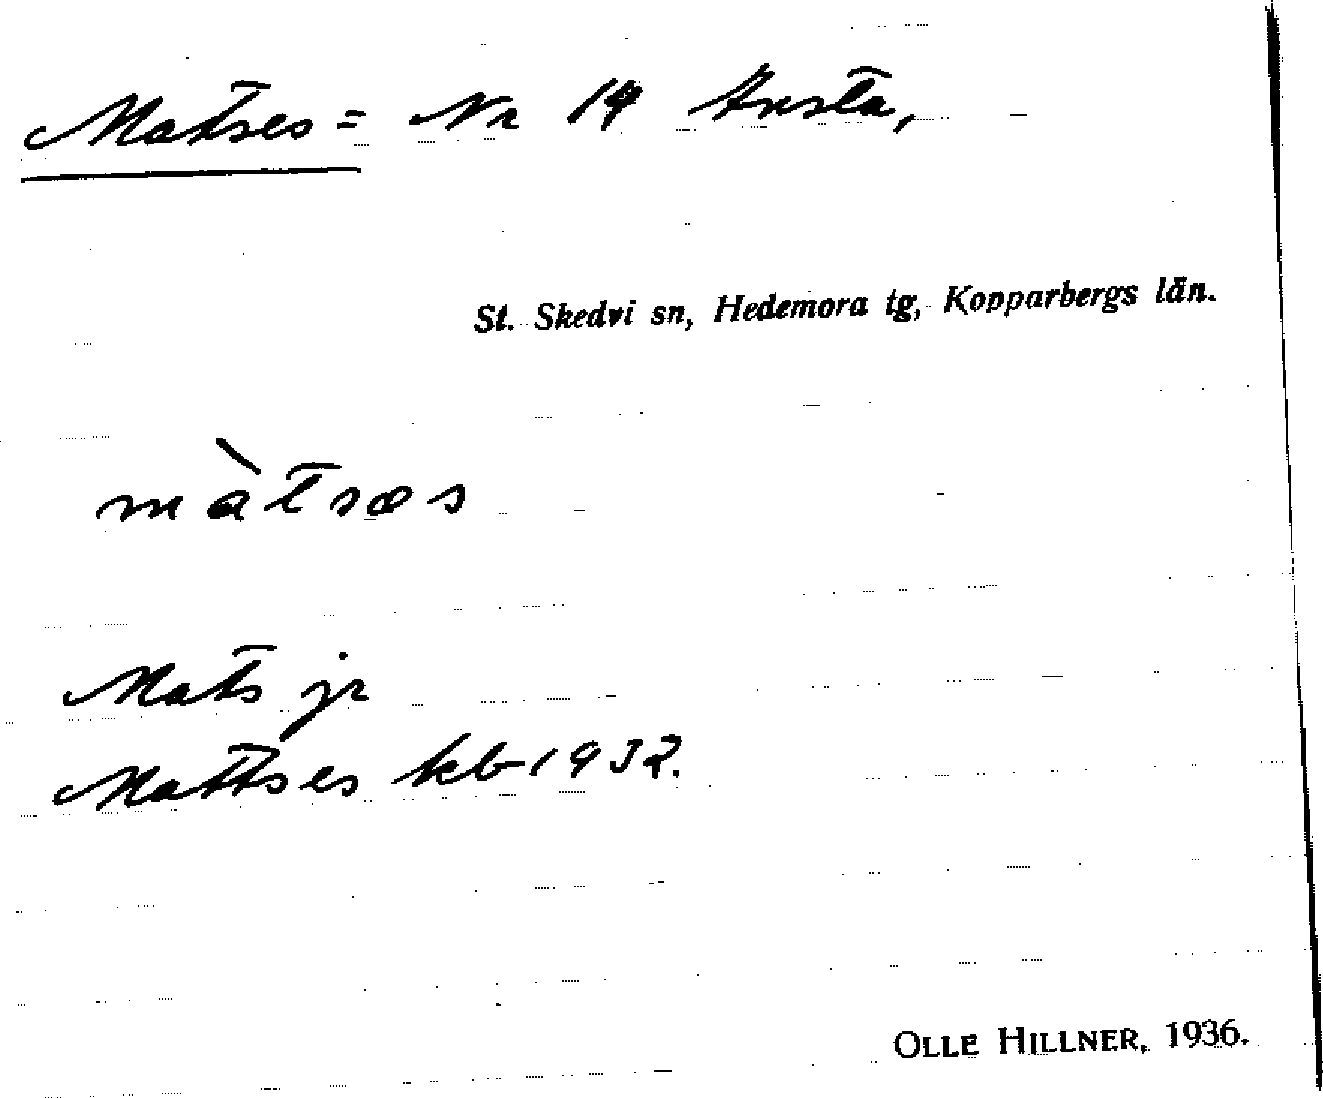 Matses = Nr 14 Ansta,
St. Skedvi sn, Hedemora tg, Kopparbergs län.
màtsœs
Mats jr
Mattses kb 1932.
OLLE HILLNER, 1936.